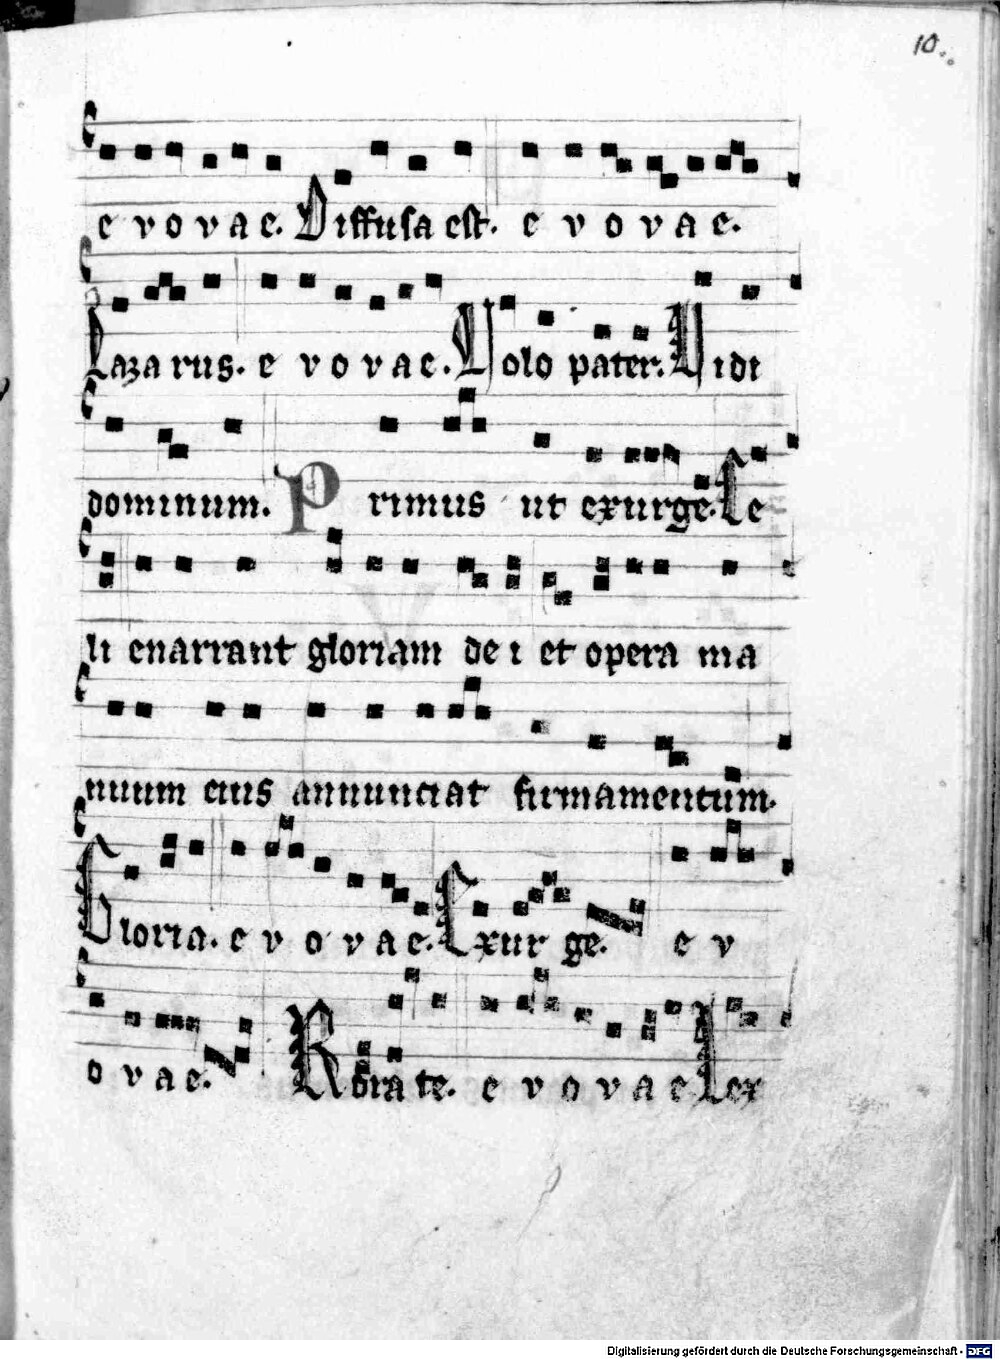 10.
e v o v a e. Diffusa est. e v o v a e.
Lazarus. e v o v a e. Volo pater. Vidi
dominum. Primus ut exurge. Ce
li enarrant gloriam dei et opera ma
nuum eius annunciat firmamentum.
Gloria. e v o v a e. Exurge. e v
o v a e. Rorate. e v o v a e Lex
Digitalisierung gefördert durch die Deutsche Forschungsgemeinschaft - DFG